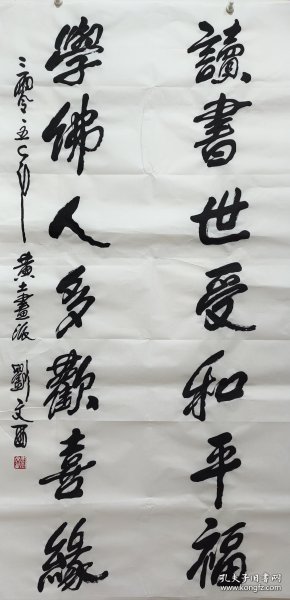 讀書世受和平福
學佛人多歡喜緣
二零一五年
黄土畫派 劉文西
孔夫子旧书网
kongfz.com